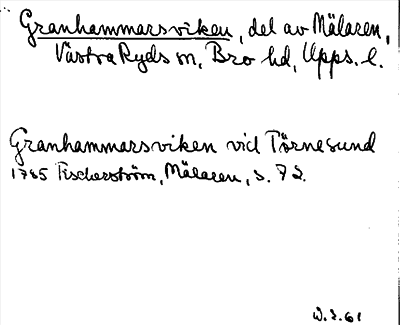 Granhammarsviken, del av Mälaren,
Västra Ryds sn, Bro hd, Upps. l.
Granhammarsviken vid Törnesund
1785 Fischerström, Mälaren, s. 72.